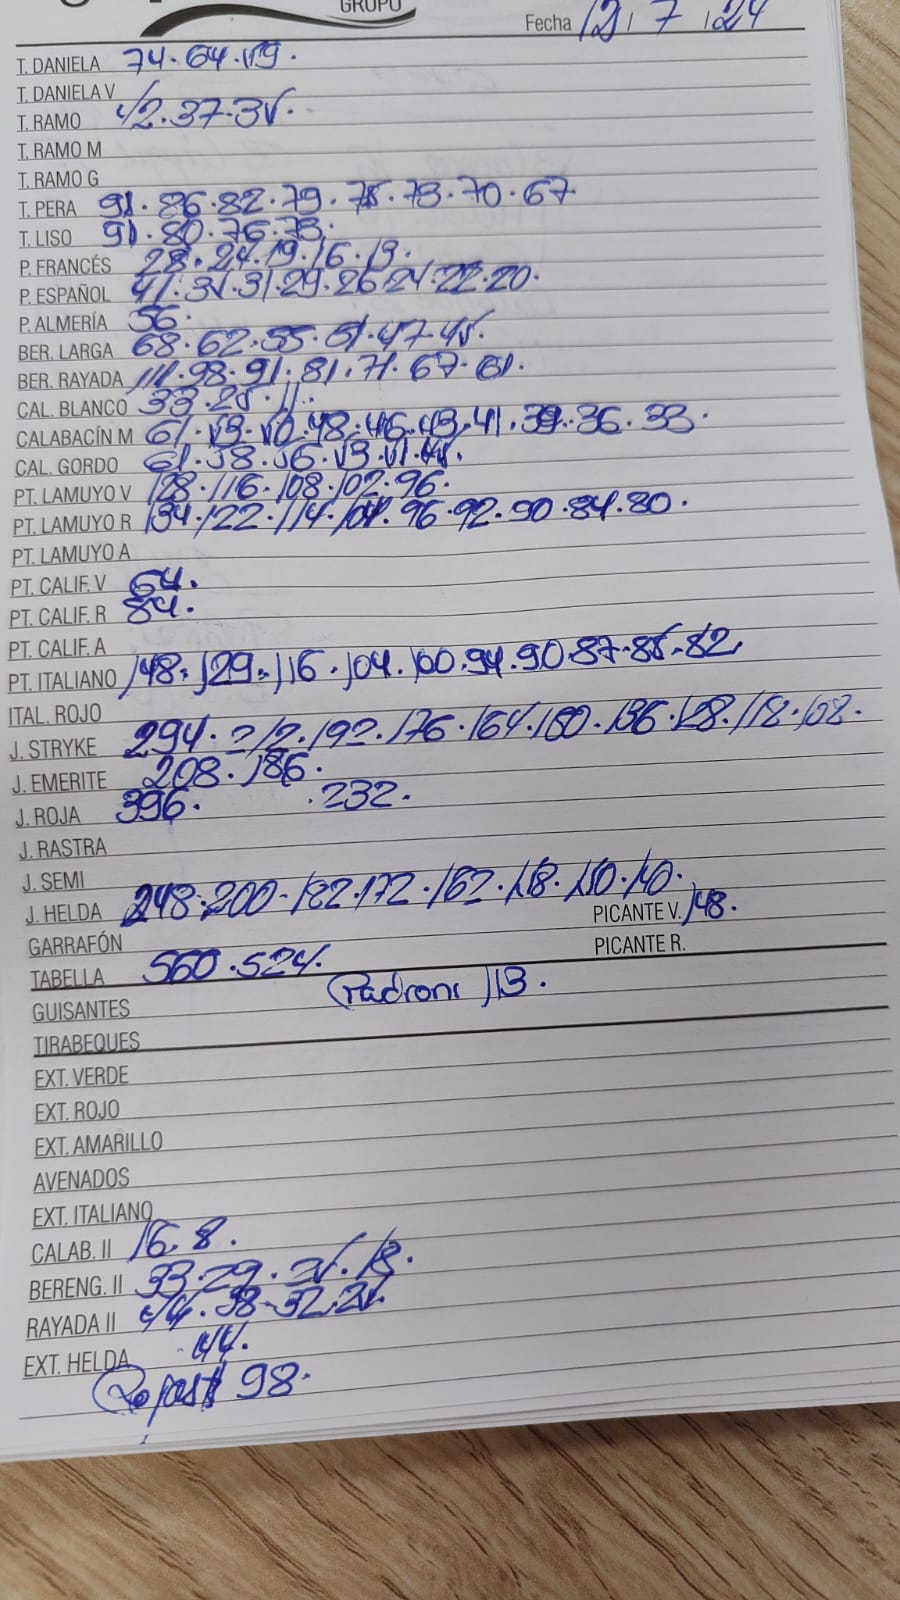 GRUPO
Fecha 12 / 7 / 24
T. DANIELA 74. 64. 59.
T. DANIELA V
T. RAMO 42. 37. 35.
T. RAMO M
T. RAMO G
T. PERA 91. 86. 82. 79. 75. 73. 70. 67.
T. LISO 91. 80. 76. 73.
P. FRANCÉS 28. 24. 19. 16. 13.
P. ESPAÑOL 41. 34. 31. 29. 26. 24. 22. 20.
P. ALMERÍA 56.
BER. LARGA 68. 62. 55. 51. 47. 45.
BER. RAYADA 111. 98. 91. 81. 71. 67. 61.
CAL. BLANCO 33. 25. 11.
CALABACÍN M 61. 53. 50. 48. 46. 43. 41. 39. 36. 33.
CAL. GORDO 61. 58. 56. 53. 51. 45.
PT. LAMUYO V 128. 116. 108. 102. 96.
PT. LAMUYO R 134. 122. 114. 104. 96. 92. 90. 84. 80.
PT. LAMUYO A
PT. CALIF. V 64.
PT. CALIF. R 84.
PT. CALIF. A
PT. ITALIANO 148. 129. 116. 104. 100. 94. 90. 87. 85. 82.
ITAL. ROJO
J. STRYKE 294. 212. 192. 176. 164. 150. 136. 128. 118. 108.
J. EMERITE 208. 186.
J. ROJA 396. .232.
J. RASTRA
J. SEMI
J. HELDA 248. 200. 182. 172. 162. 158. 150. 140.
PICANTE V. 148.
GARRAFÓN
PICANTE R.
TABELLA 560. 524.
Padroni 113.
GUISANTES
TIRABEQUES
EXT. VERDE
EXT. ROJO
EXT. AMARILLO
AVENADOS
EXT. ITALIANO
CALAB. II 16. 8.
BERENG. II 33. 29. 25. 18.
RAYADA II 44. 38. 32. 25.
EXT. HELDA 44.
98.